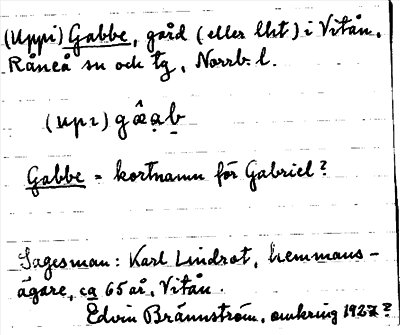 (Uppi) Gabbe, gård (eller lht) i Vitån,
Råneå sn och tg, Norrb. l.
(upı) gậḅ
Gabbe = kortnamn för Gabriel?
Sagesman: Karl Lindrot, hemmans-
ägare, ca 65 år, Vitån.
Edvin Brännström, omkring 1927?